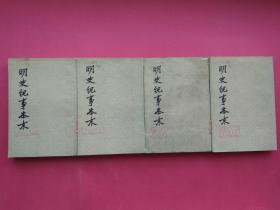 明史纪事本末
明史纪事本末
明史纪事本末
明史纪事本末